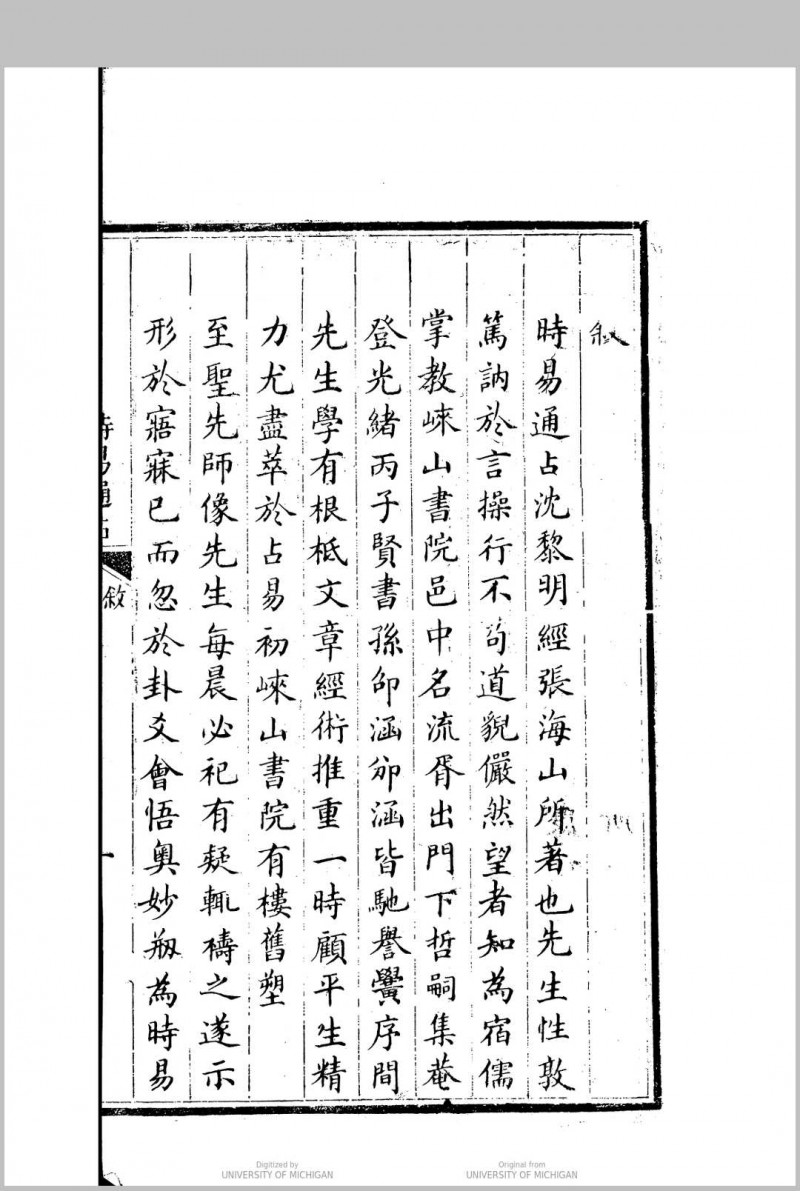 敘
時易通占沈黎明經張海山所著也先生性敦
篤訥於言操行不苟道貌儼然望者知為宿儒
掌教崍山書院邑中名流胥出門下哲嗣集菴
登光緒丙子賢書孫卬涵夘涵皆馳譽黌序間
先生學有根柢文章經術推重一時顧平生精
力尤盡萃於占易初崍山書院有樓舊塑
至聖先師像先生每晨必祀有疑輒禱之遂示
形於寤寐已而忽於卦爻會悟奧妙剏為時易
時易通占
敘
一
Digitized by
UNIVERSITY OF MICHIGAN
Original from
UNIVERSITY OF MICHIGAN